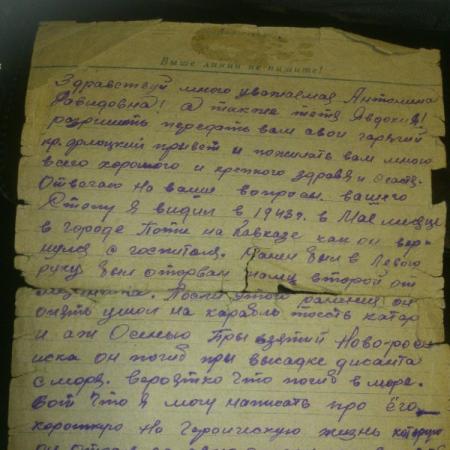 Выше линии не пишите!
Здравствуй много уважаемая Антонина
Давидовна! а также тетя Явдокия!
разришить передать вам свои гарячий
кр. флоцкий привет и пожилать вам много
всего хорошого и крепкого здравя и счастя.
Отвечаю на ваши вопросы. вашего
Стопу я видил в 1943г. в Мае месяце
в городе Поти на Кавказе как он вер-
нулся с госпиталя. Ранен был в Левою
руку был оторван палец второй от
После этой ранения он
опять ушол на карабль тость катер
и аж Осенью Пры взятий Ново-росс-
иска он погиб при высадке дисанта
с моря. вероэтно что погиб в море.
Вот что я могу написать про его
короткую но Героическую жизнь которую